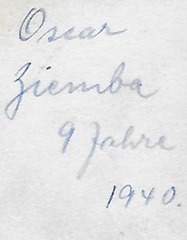 Oscar
Ziemba
9 Jahre
1940.